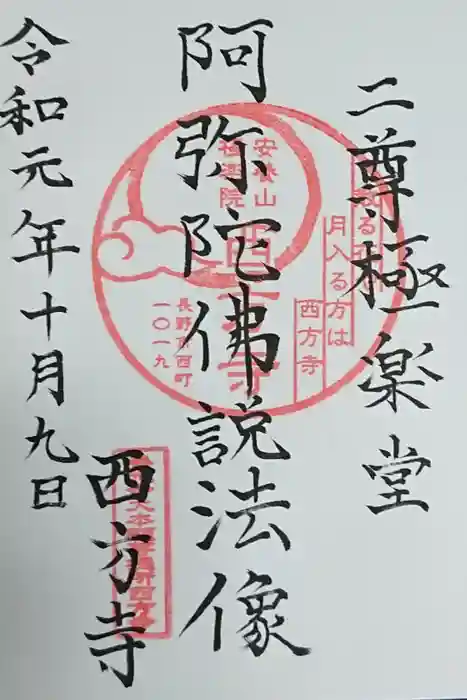 二尊極楽堂
阿弥陀佛説法像
西方寺
令和元年十月九日
月入る方は
西方寺
安養山
西方寺
長野市西町
一〇一九